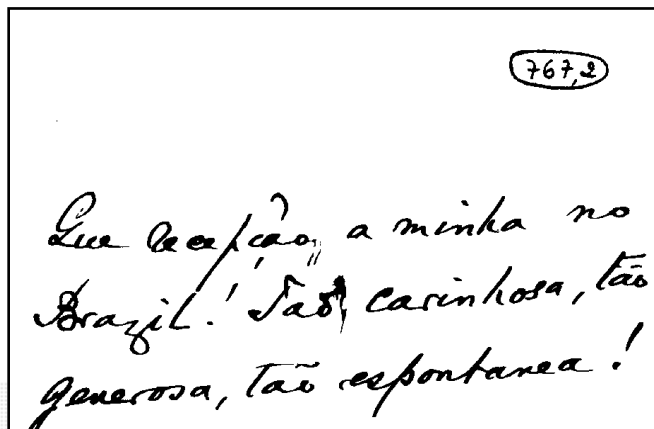 767,2
Que recepção, a minha no
Brazil! Tão carinhosa, tão
generosa, tão espontanea!